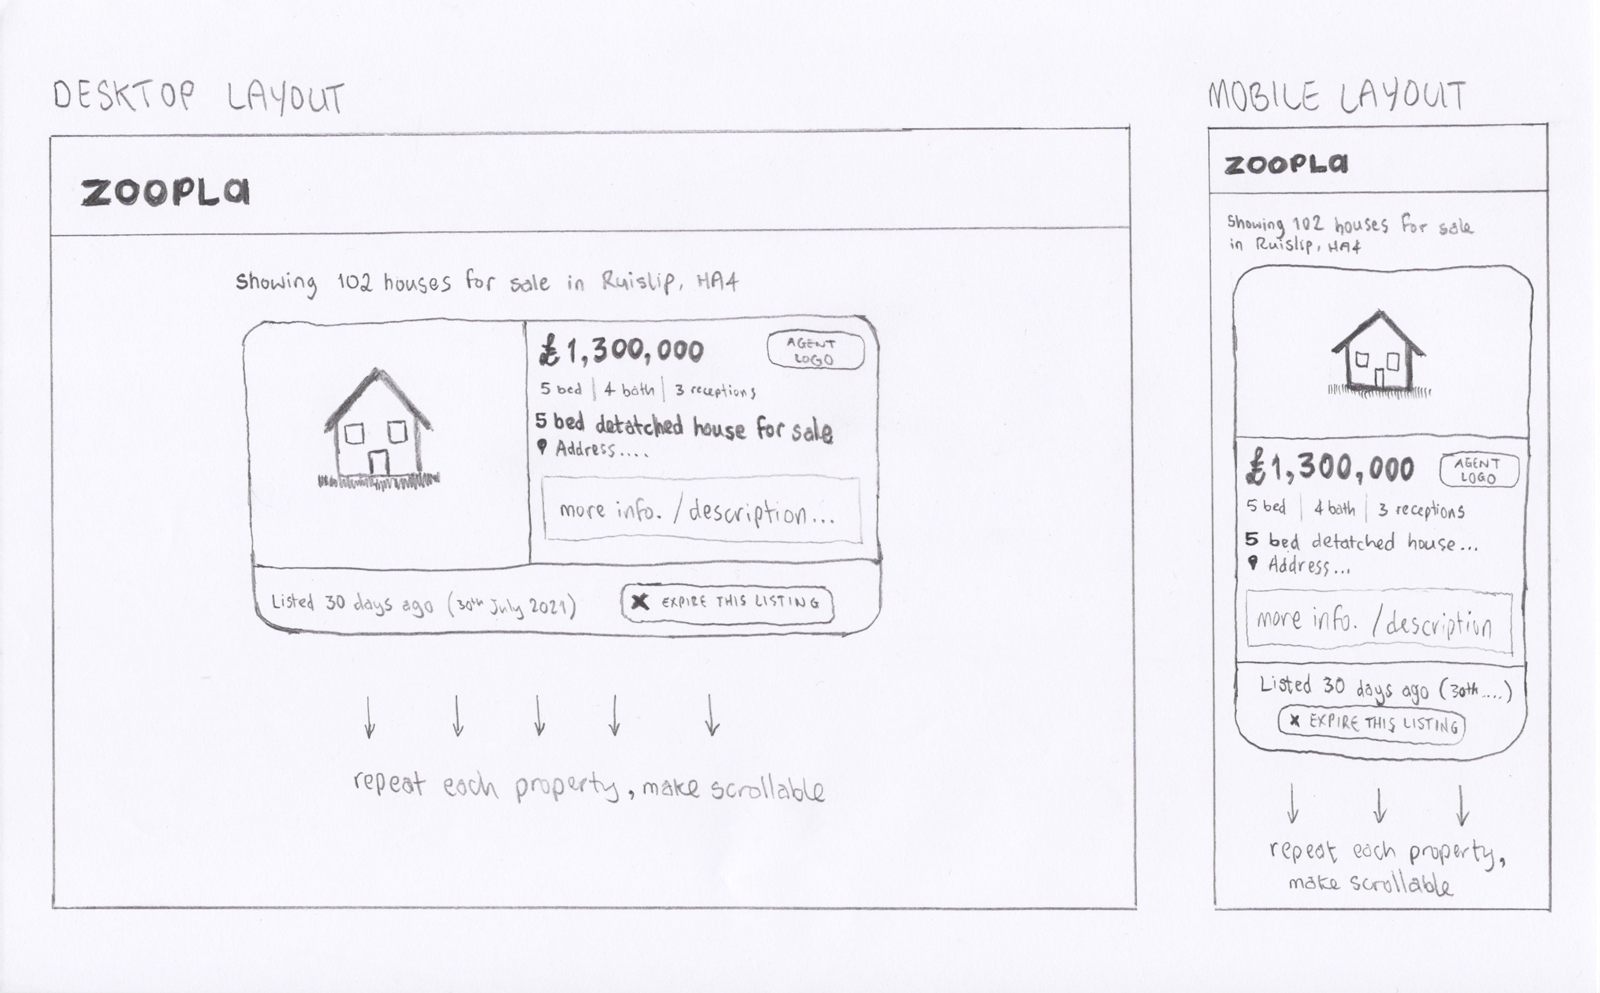 DESKTOP LAYOUT
ZOOPLa
Showing 102 houses for sale in Ruislip, HA4
£1,300,000
AGENT
LOGO
5 bed | 4 bath | 3 receptions
5 bed detatched house for sale
Address....
more info. / description...
Listed 30 days ago (30th July 2021)
X EXPIRE THIS LISTING
repeat each property, make scrollable
MOBILE LAYOUT
ZOOPLa
Showing 102 houses for sale
in Ruislip, HA4
£1,300,000
AGENT
LOGO
5 bed | 4 bath | 3 receptions
5 bed detatched house...
Address...
more info. / description
Listed 30 days ago (30th....)
X EXPIRE THIS LISTING
repeat each property,
make scrollable